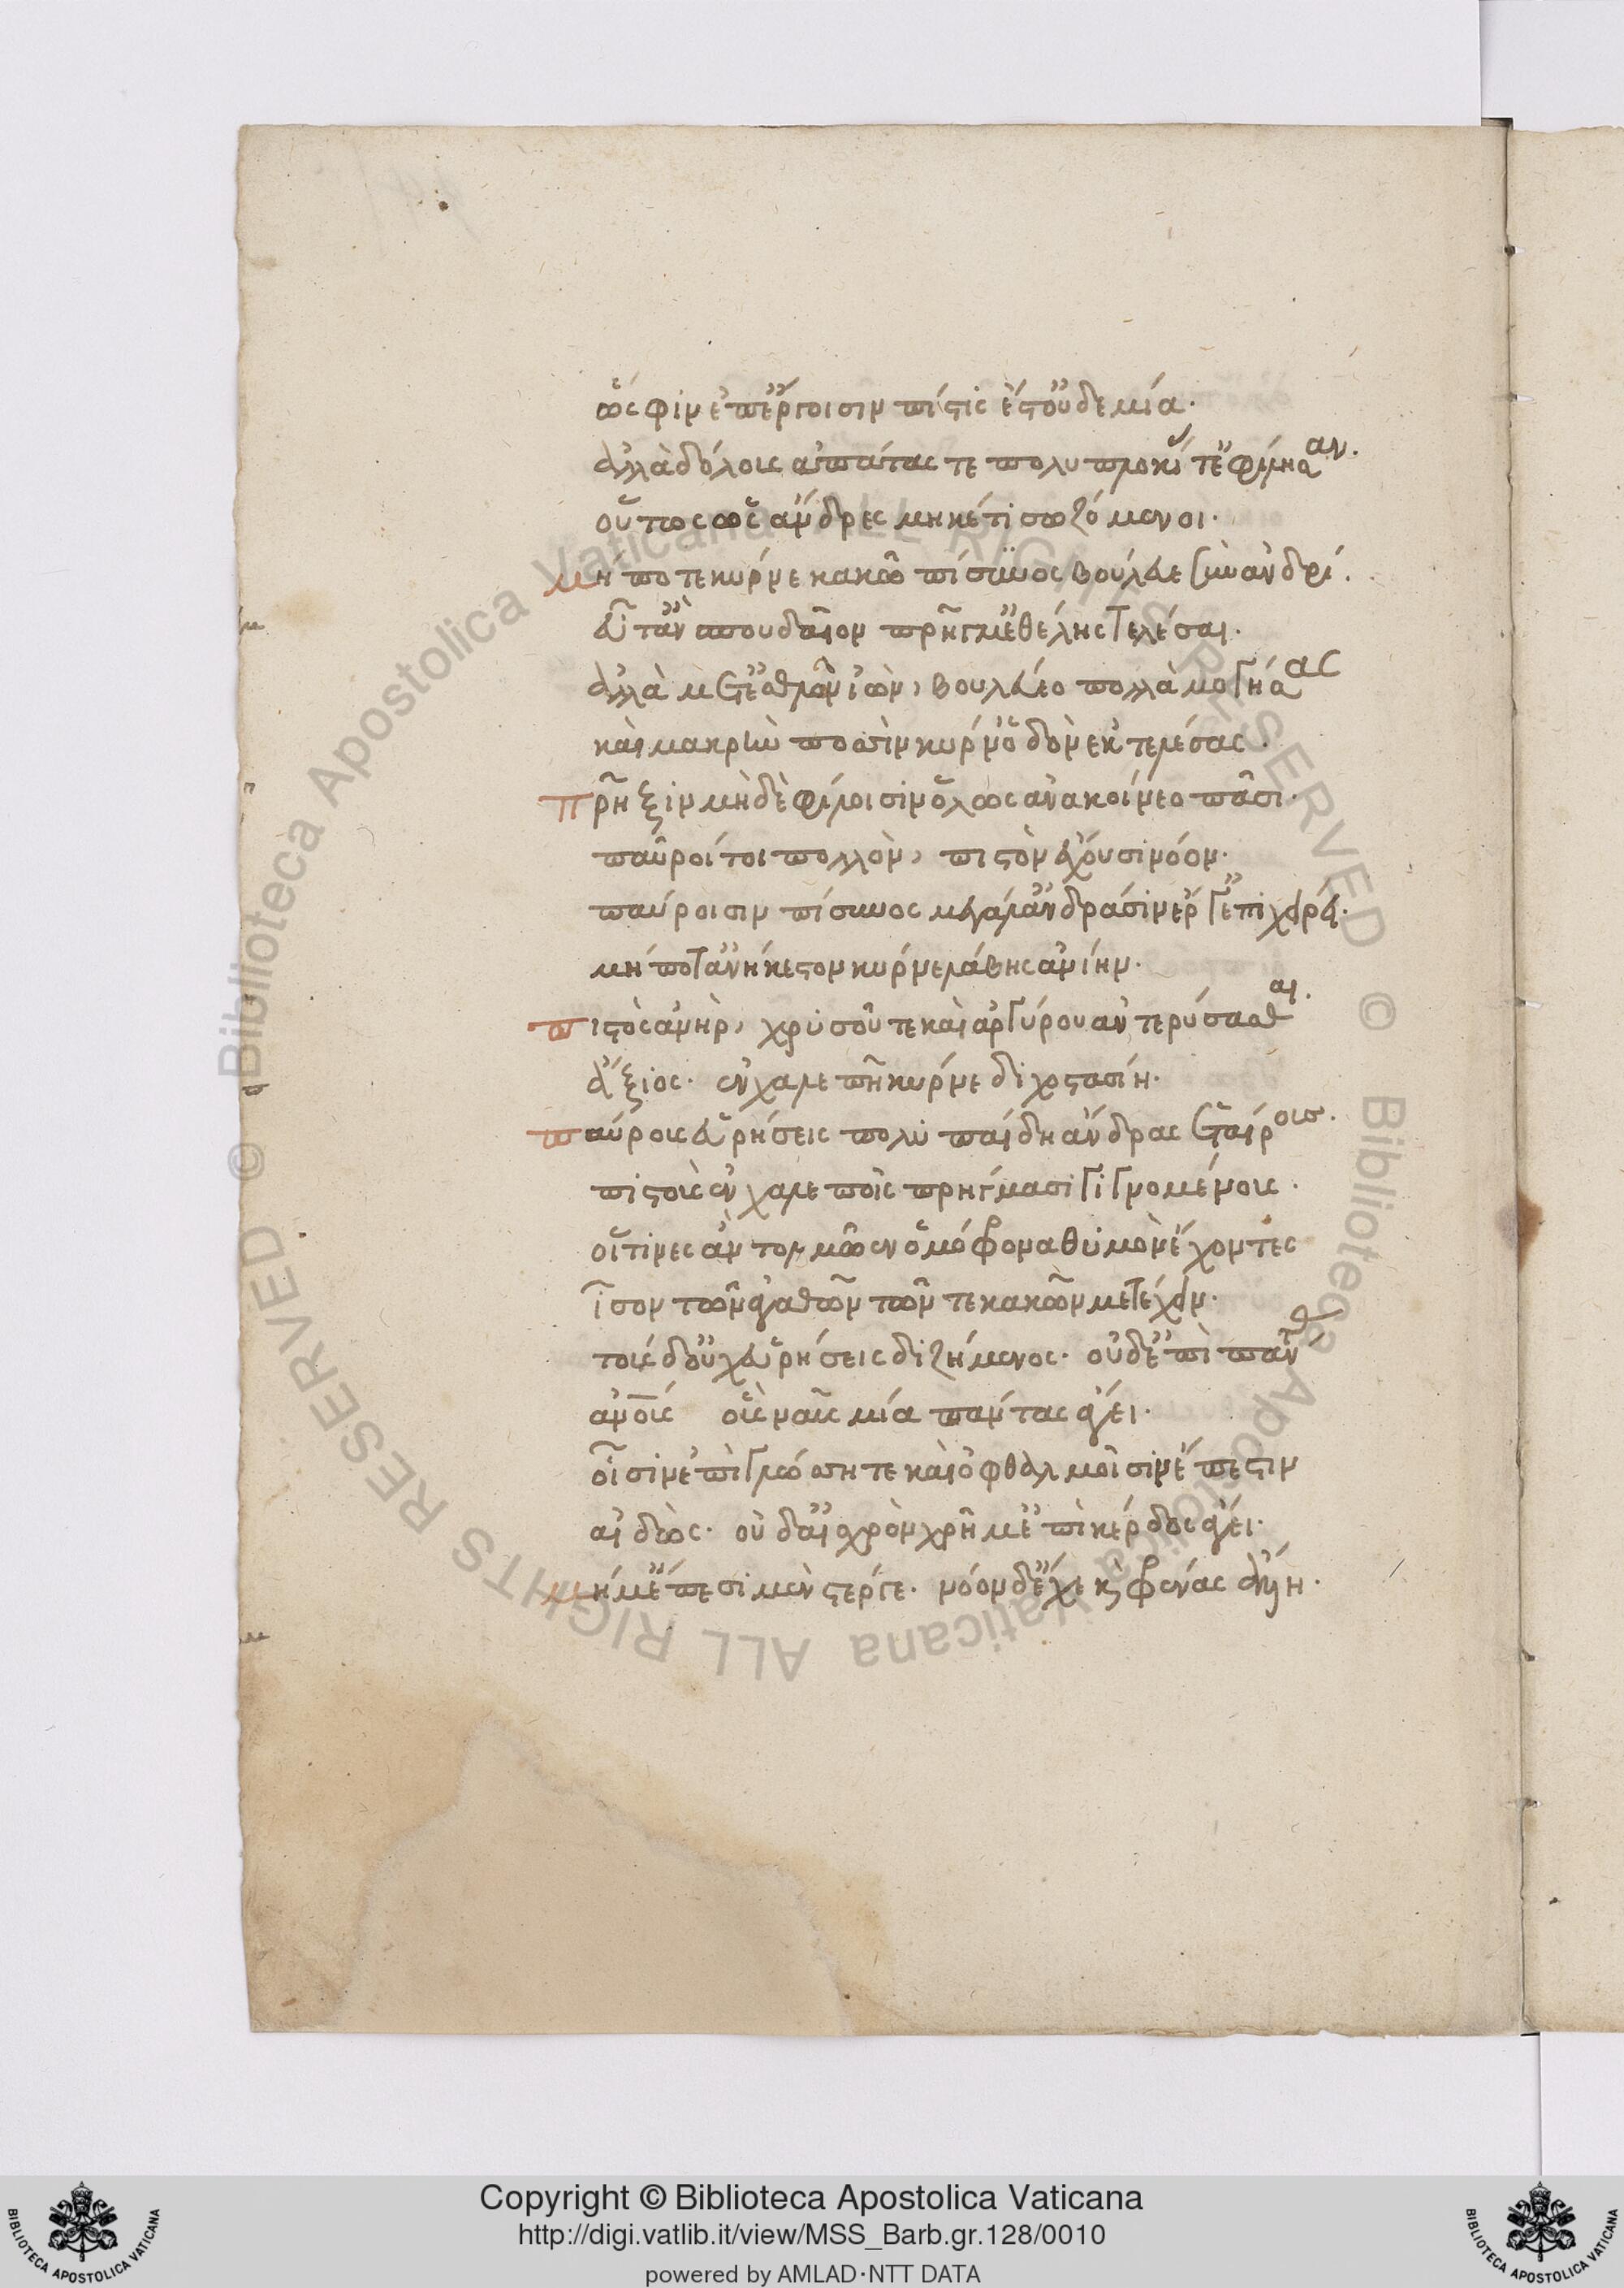 ὥς σφιν ἐπ' ἔργοισιν πίστις ἔτ' οὐδεμία.
ἀλλὰ δόλους ἀπάτας τε πολυπλοκί τ' ἐφίλησαν.
οὕτως ὡς ἄνδρες μηκέτι σωζόμενοι.
μήποτε κύρνε κακῶ πίσυνος βούλευε σὺν ἀνδρί.
εὖτ' ἂν σπουδαῖον πρῆγμ' ἐθέλης τελέσαι.
ἀλλὰ μετ' ἐσθλὸν ἰὼν, βουλεύεο πολλὰ μογήσας
καὶ μακρὴν ποσὶν κύρν' ὁδὸν ἐκτελέσας.
πρῆξιν μὴ δὲ φίλοισιν ὅλως ἀνακοίνεο πᾶσι.
παῦροί τοι πολλῶν, πιστὸν ἔχουσι νόον.
παύροισιν πίσυνος μεγάλ' ἀνδράσιν ἔργ' ἐπιχείρει.
μή ποτ' ἀνήκεστον κύρνε λάβης ἀνίην.
πιστὸς ἀνὴρ, χρυσοῦ τε καὶ ἀργύρου ἀντερύσασθαι.
ἄξιος. ἐν χαλεπῆ κύρνε διχοστασίη.
παύρους εὑρήσεις πολυπαίδη ἄνδρας ἑταίρους.
πιστοὺς ἐν χαλεποῖς πρήγμασι γιγνομένους.
οἵτινες ἂν τολμῶεν ὁμόφρονα θυμὸν ἔχοντες
ἶσον τῶν ἀγαθῶν τῶν τε κακῶν μετέχειν.
τοὺς δ' οὐχ εὑρήσεις διζήμενος. οὐδ' ἐπὶ πάντας
ἀν οὓς ναῦς μία πάντας ἄγει.
οἷσιν ἐπὶ γλώσση τε καὶ ὀφθαλμοῖσιν ἔπεστιν
αἰδώς. οὐδ' αἰσχρὸν χρῆμ' ἔπι κέρδος ἄγει.
μή μ' ἔπεσιν μὲν στέργε. νόον δ' ἔχε κ φρένας ἄλλη.
Copyright © Biblioteca Apostolica Vaticana
http://digi.vatlib.it/view/MSS_Barb.gr.128/0010
powered by AMLAD·NTT DATA